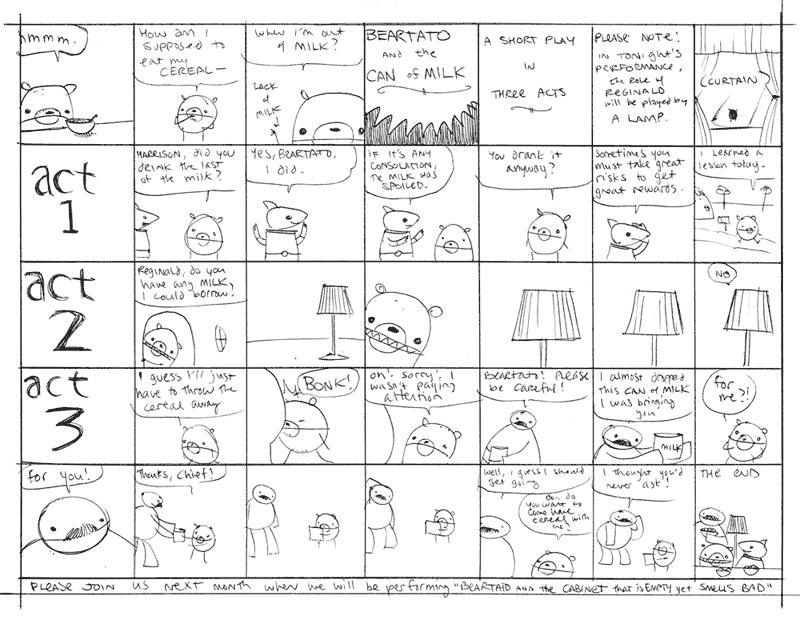 hmmm.
How am I
supposed to
eat my
CEREAL—
when I'm out
of MILK?
LACK
of
MILK
BEARTATO
and the
CAN of MILK
A SHORT PLAY
IN
THREE ACTS
PLEASE NOTE!
IN TONIGHT'S
PERFORMANCE,
the role of
REGINALD
will be played by
A LAMP.
(CURTAIN)
act
1
HARRISON, did you
drink the last
of the milk?
Yes, BEARTATO,
I did.
IF IT'S ANY
CONSOLATION,
THE MILK WAS
SPOILED.
You drank it
anyway?
Sometimes you
must take great
risks to get
great rewards.
I learned a
lesson today.
act
2
Reginald, do you
have any MILK
I could borrow?
NO
act
3
I guess I'll just
have to throw the
cereal away
BONK!
oh! sorry, I
wasn't paying
attention
Beartato! Please
be careful!
I almost dropped
this CAN of MILK
I was bringing
you
MILK
for
me?!
for you!
Thanks, Chief!
well, i guess I should
get going
Do.. do
you want to
come have
cereal with
me?
I thought you'd
never ask!
THE END
PLEASE JOIN US next month when we will be performing "BEARTATO AND THE CABINET that is EMPTY yet SMELLS BAD"